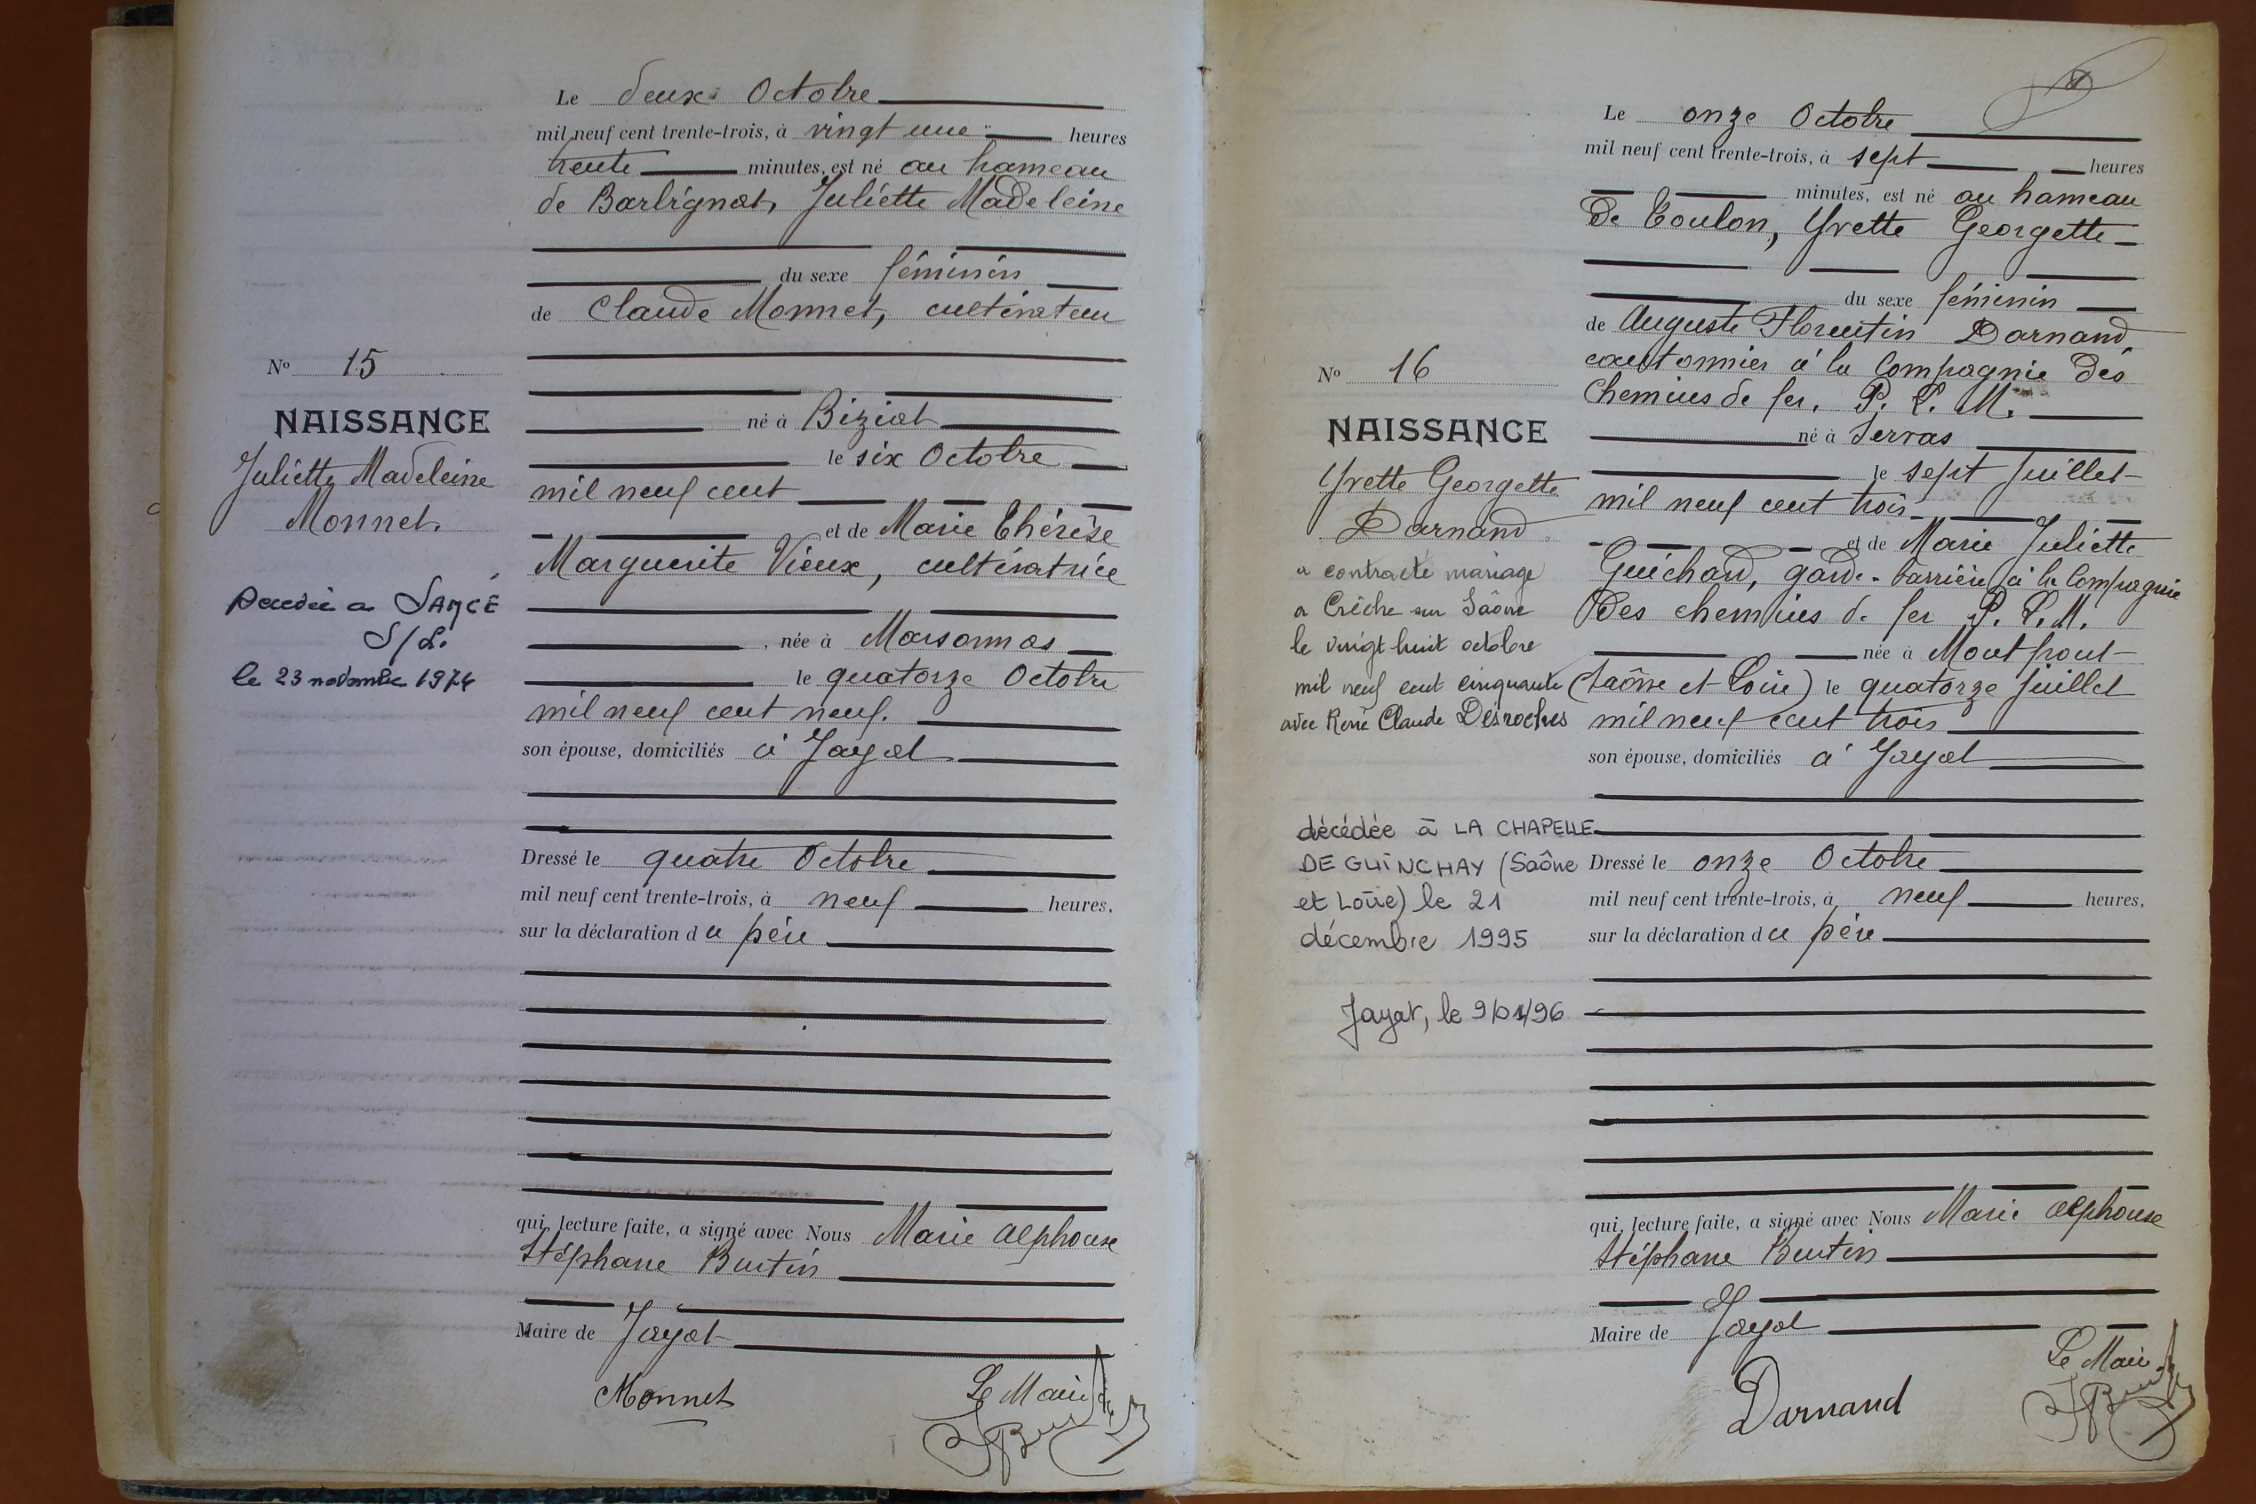 Le deux Octobre
mil neuf cent trente-trois, à vingt une heures
trente minutes, est né au hameau
de Barbignat, Juliette Madeleine
du sexe féminin
de Claude Monnet, cultivateur
né à Biziat
le six Octobre
mil neuf cent
et de Marie Thérèse
Marguerite Vieux, cultivatrice
née à Marsonnas
le quatorze Octobre
mil neuf cent neuf.
son épouse, domiciliés à Jayat
Dressé le quatre Octobre
mil neuf cent trente-trois, à neuf heures,
sur la déclaration du père
qui, lecture faite, a signé avec Nous Marie Alphonse
Stéphane Burtin
Maire de Jayat
Monnet
Le Maire
No 15
NAISSANCE
Juliette Madeleine
Monnet.
Décédée à SANCÉ
S/L.
le 23 novembre 1974
Le onze Octobre
mil neuf cent trente-trois, à sept heures
minutes, est né au hameau
de Toulon, Yvette Georgette
du sexe féminin
de Auguste Florentin Darnand
cantonnier à la Compagnie des
Chemins de fer. P. L. M.
né à Serras
le sept Juillet
mil neuf cent trois
et de Marie Juliette
Guichard, garde-barrière à la Compagnie
des chemins de fer P. L. M.
née à Montpont
(Saône et Loire) le quatorze Juillet
mil neuf cent trois
son épouse, domiciliés à Jayat
Dressé le onze Octobre
mil neuf cent trente-trois, à neuf heures,
sur la déclaration du père
qui, lecture faite, a signé avec Nous Marie Alphonse
Stéphane Burtin
Maire de Jayat
Darnand
Le Maire
No 16
NAISSANCE
Yvette Georgette
Darnand
a contracté mariage
à Crêche sur Saône
le vingt huit octobre
mil neuf cent cinquante
avec René Claude Desroches
décédée à LA CHAPELLE
DE GUINCHAY (Saône
et Loire) le 21
décembre 1995
Jayat, le 9/01/96